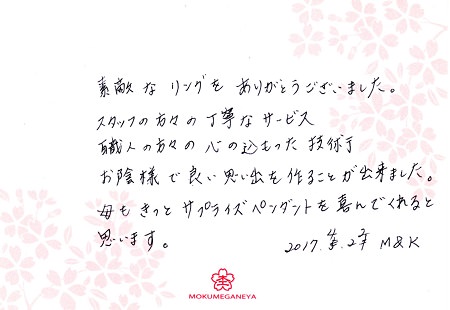 素敵なリングをありがとうございました。
スタッフの方々の丁寧なサービス
職人の方々の心の込もった技術で
お陰様で良い思い出を作ることが出来ました。
母もきっとサプライズペンダントを喜んでくれると
思います。
2017. M&K
MOKUMEGANEYA